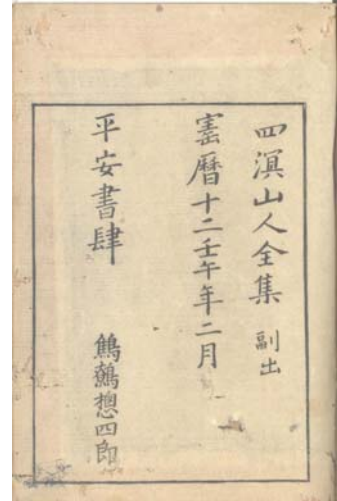 四溟山人全集 副出
寳暦十二壬午年二月
平安書肆 鵜鶘惣四郎